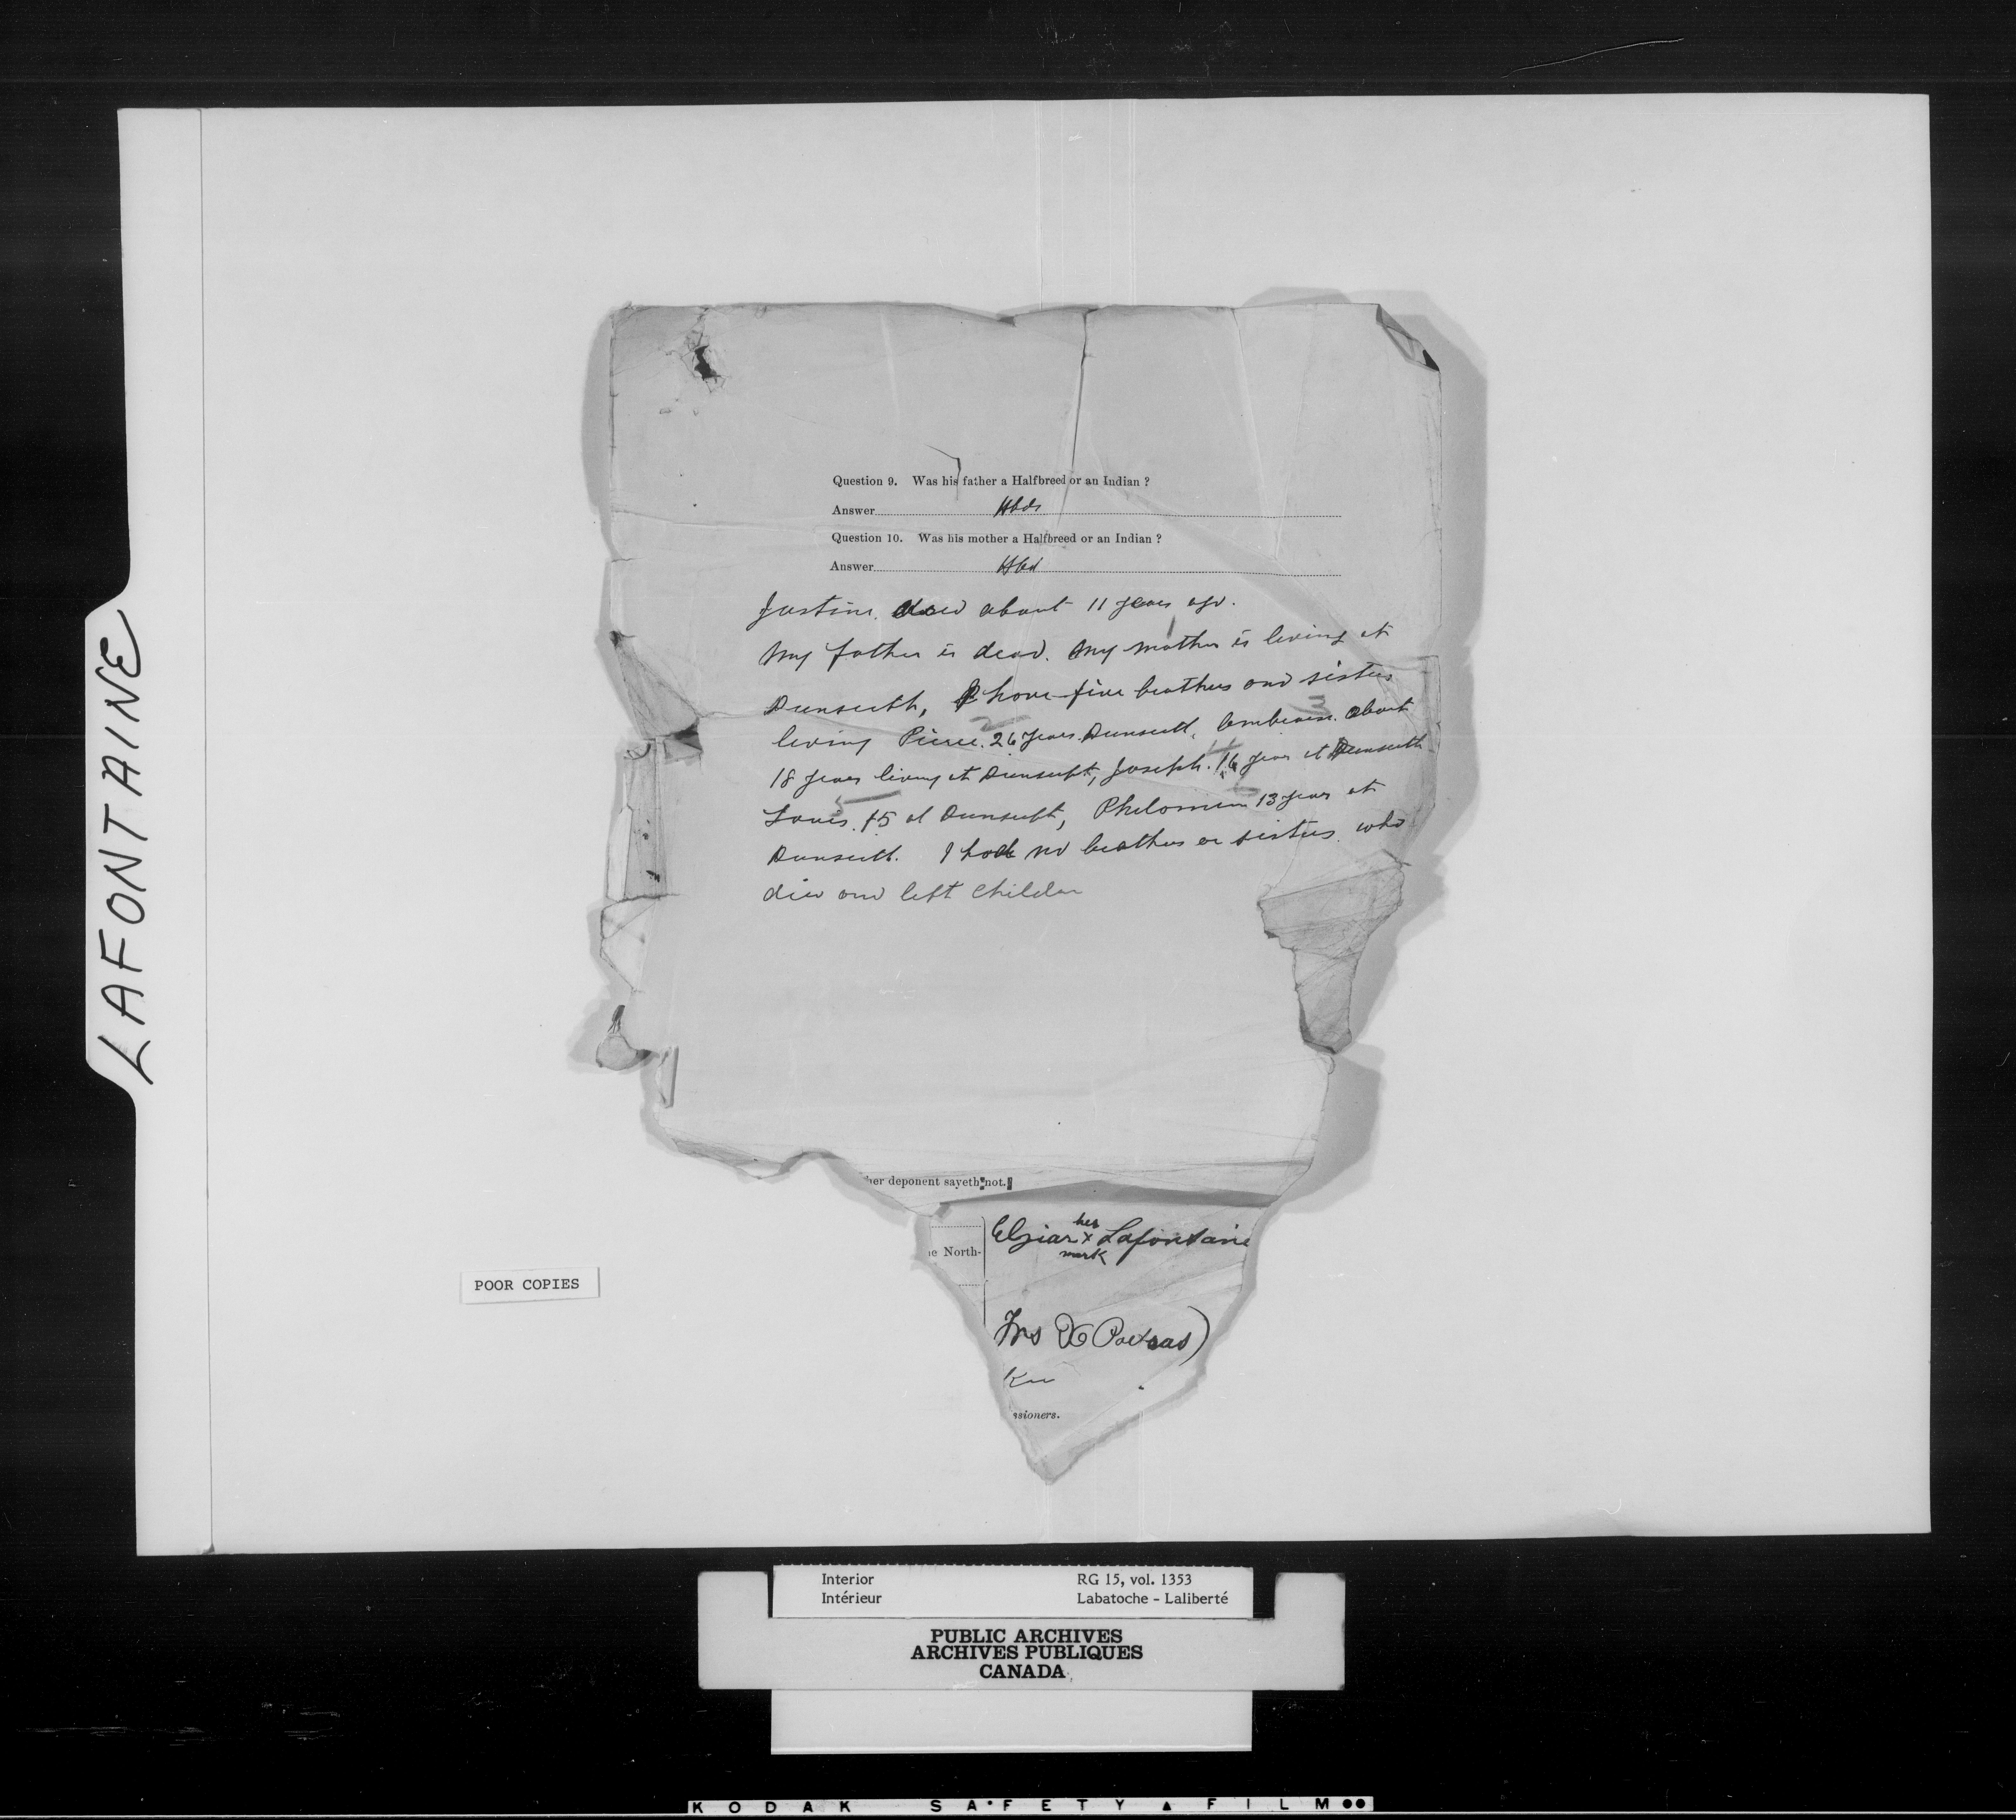 LAFONTAINE
Question 9. Was his father a Halfbreed or an Indian ?
Answer Hbds
Question 10. Was his mother a Halfbreed or an Indian ?
Answer Hbd
Justine. died about 11 years ago.
My father is dead. My mother is living at
Dunseith, I have five brothers and sisters
2 3
living Pierre. 26 years Dunseith, Ambroise. about
4
18 years living at Dunseith, Joseph. 16 years at Dunseith
5
Louis. 15 at Dunseith, Philomene 13 years at
Dunseith. I had no brothers or sisters who
died and left children
her deponent sayeth not.
her
Elziar x Lafontaine
mark
e North-
Frs X Poitras)
ssioners.
POOR COPIES
Interior RG 15, vol. 1353
Intérieur Labatoche - Laliberté
PUBLIC ARCHIVES
ARCHIVES PUBLIQUES
CANADA
KODAK SAFETY ▲ FILM ●●